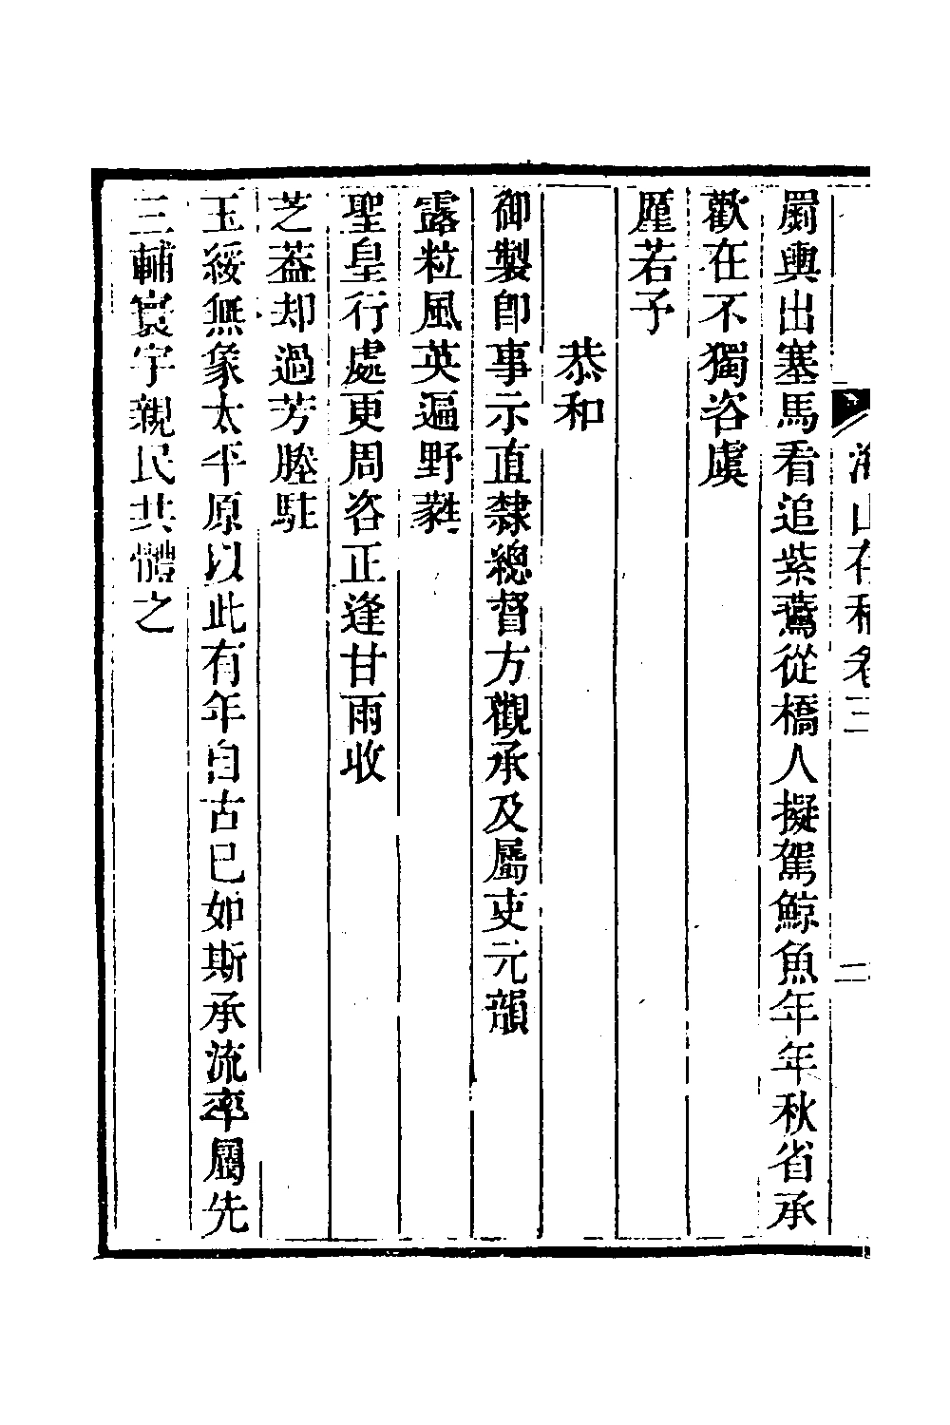 海山存稿卷三
二
罽輿出塞馬看追紫鷰從橋人擬駕鯨魚年年秋省承
歡在不獨咨虞
厪若予
恭和
御製卽事示直隸總督方觀承及屬吏元韻
露粒風英遍野蕤
聖皇行處更周咨正逢甘雨收
芝葢却過芳塍駐
玉綏無象太平原以此有年自古已如斯承流率屬先
三輔寰宇親民共體之